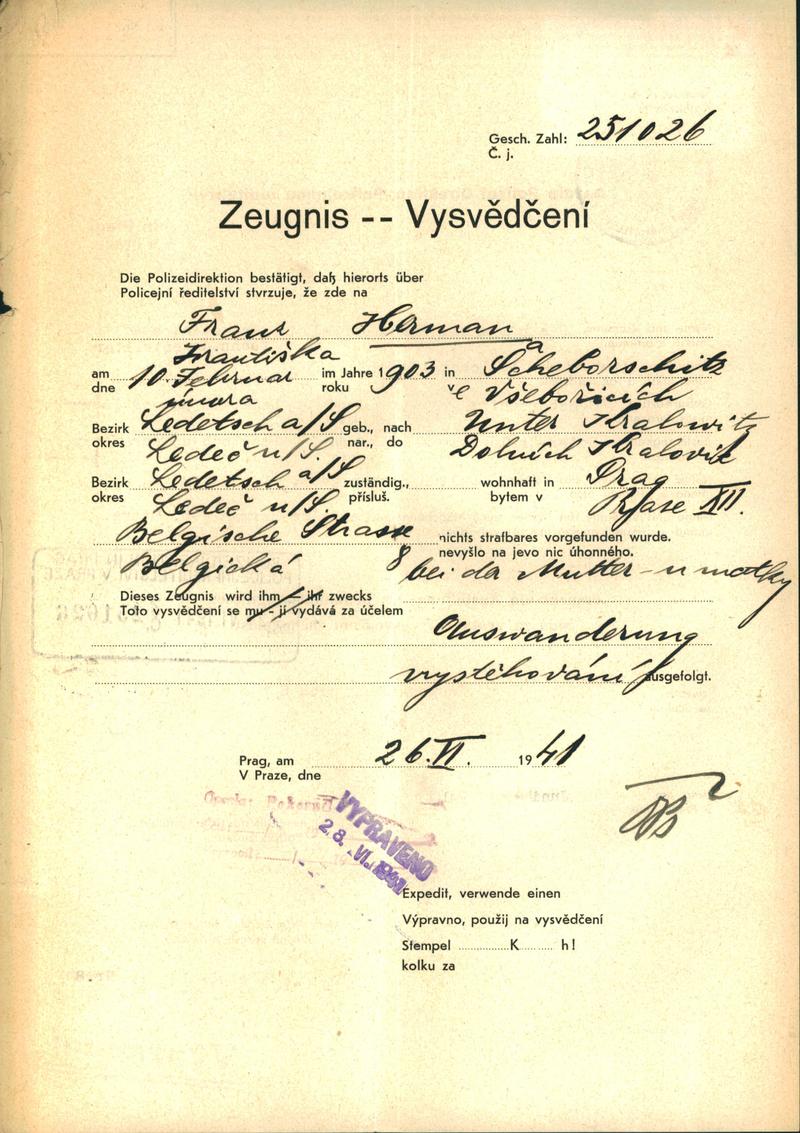 Gesch. Zahl: 251026
Č. j.
Zeugnis -- Vysvědčení
Die Polizeidirektion bestätigt, daß hierorts über
Policejní ředitelství stvrzuje, že zde na
Franz Herman
Františka a
am 10. Februar im Jahre 1903 in Scheborschitz
dne února roku ve Všebořicích
Bezirk Ledetsch a/S geb., nach Unter Kralowitz
okres Ledeč n/S. nar., do Dolních Kralovic
Bezirk Ledetsch a/S zuständig., wohnhaft in Prag
okres Ledeč n/S. přísluš. bytem v Praze XII.
Belgische Strasse nichts strafbares vorgefunden wurde.
Belgická 8 nevyšlo na jevo nic úhonného.
bei der Mutter - u matky
Dieses Zeugnis wird ihm - ihr zwecks
Toto vysvědčení se mu - jí vydává za účelem
Auswanderung
vystěhování ausgefolgt.
Prag, am 26. VI. 1941
V Praze, dne
VYPRAVENO
28. VI. 1941
Expedit, verwende einen
Výpravno, použij na vysvědčení
Stempel K h!
kolku za